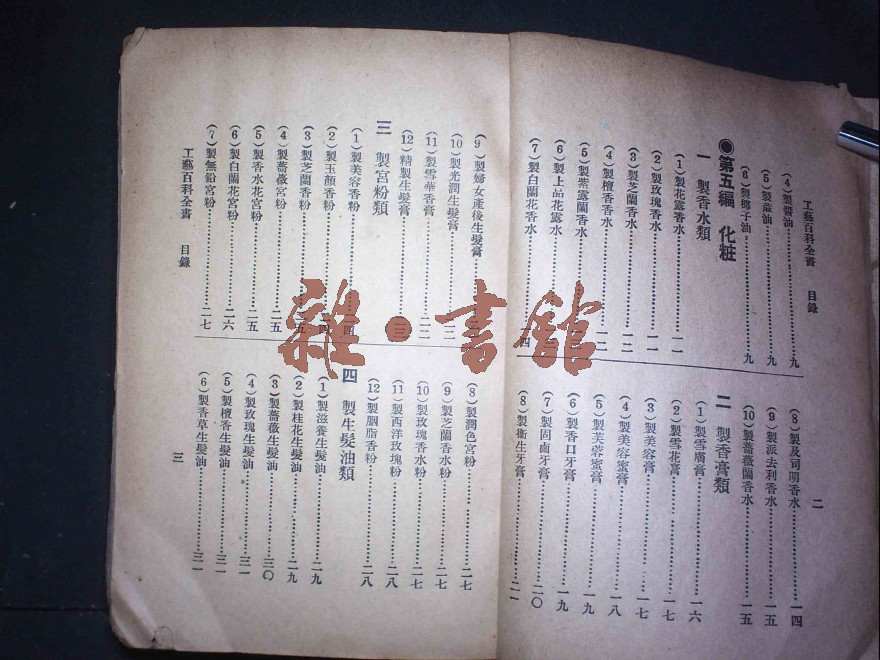 工藝百科全書　目錄　二
(4)製醬油………九
(5)製蔴油………九
(6)製椰子油………九
●第五編　化粧
一　製香水類
(1)製花露香水………一一
(2)製玫瑰香水………一一
(3)製芝蘭香水………一二
(4)製檀香香水………一二
(5)製紫露蘭香水
(6)製上品花露水
(7)製白蘭花香水………四
(8)製及司明香水………一四
(9)製派去利香水………一五
(10)製薔薇蘭香水………一五
二　製香膏類
(1)製雪膚膏………一六
(2)製雪花膏………一七
(3)製美容膏………一七
(4)製美容蜜膏………一八
(5)製芙蓉蜜膏………一九
(6)製香口牙膏………一九
(7)製固齒牙膏………二〇
(8)製衞生牙膏………二一
(9)製婦女產後生髮膏
(10)製光潤生髮膏………二二
(11)製雪華香膏………二三
(12)精製生髮膏………三
三　製宮粉類
(1)製美容香粉………四
(2)製玉顏香粉………四
(3)製芝蘭香粉………五
(4)製薔薇宮粉………二五
(5)製香水花宮粉………二五
(6)製白蘭花宮粉………二六
(7)製無鉛宮粉………二七
(8)製潤色宮粉………二七
(9)製芝蘭香水粉………二七
(10)製玫瑰香水粉………二七
(11)製西洋玫瑰粉………二八
(12)製胭脂香粉………二八
四　製生髮油類
(1)製滋養生髮油………二九
(2)製桂花生髮油………二九
(3)製薔薇生髮油………三〇
(4)製玫瑰生髮油………三一
(5)製檀香生髮油………三一
(6)製香草生髮油………三一
工藝百科全書　目錄　三
雜·書館